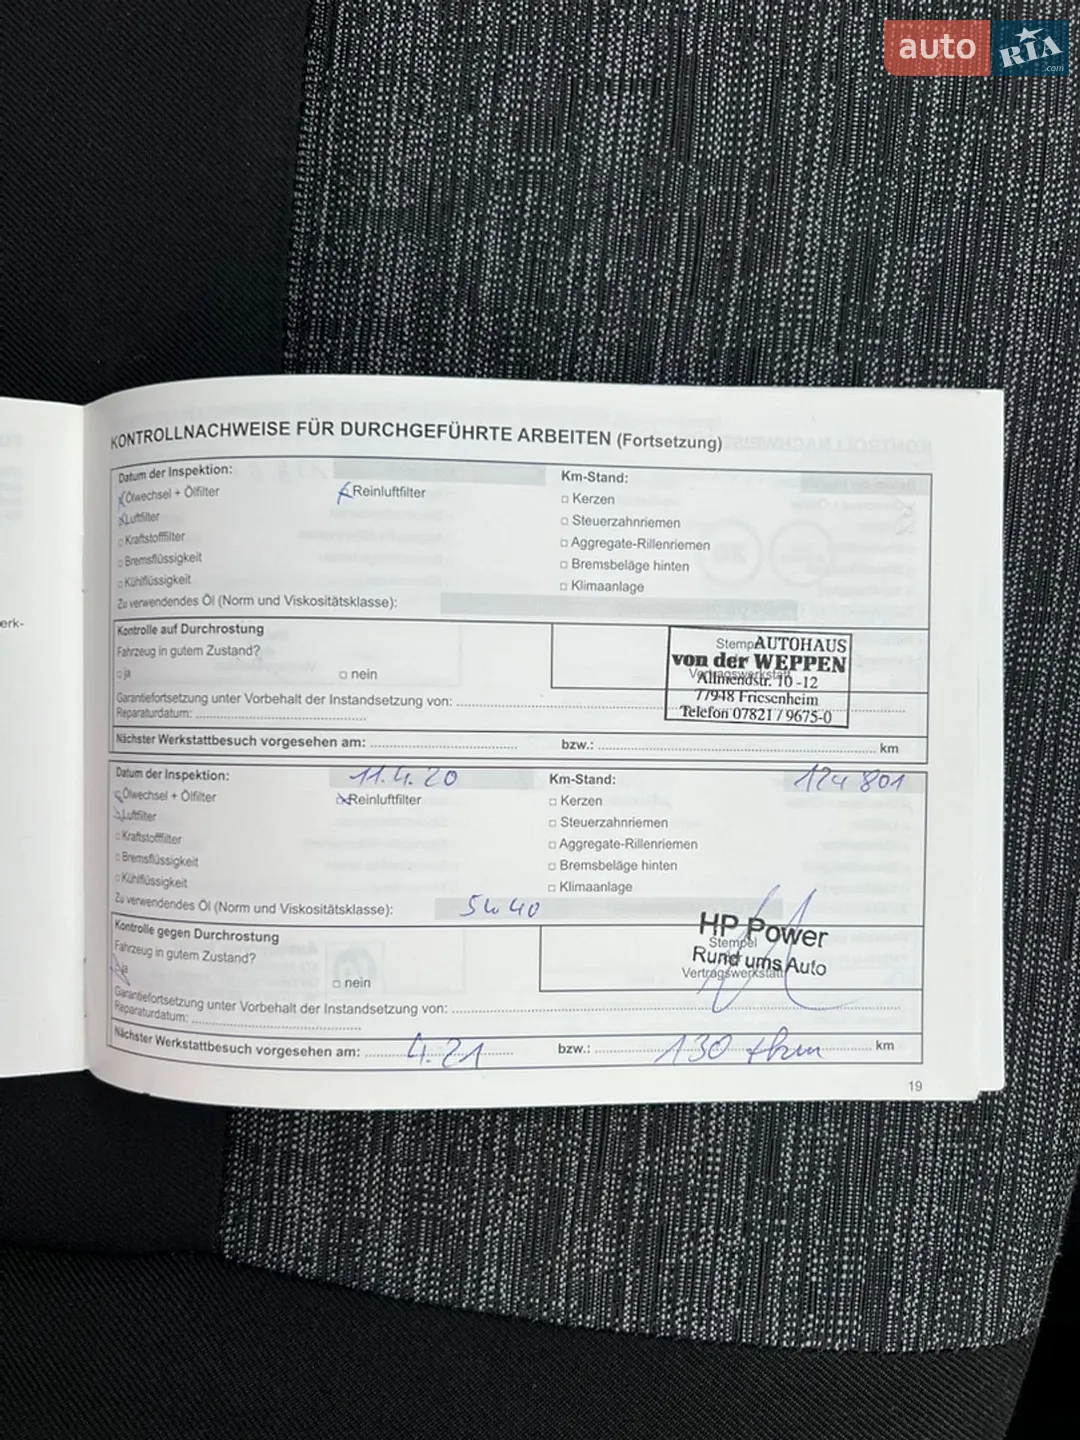 auto RIA .com
erk-
KONTROLLNACHWEISE FÜR DURCHGEFÜHRTE ARBEITEN (Fortsetzung)
Datum der Inspektion:
Km-Stand:
Ölwechsel + Ölfilter
Reinluftfilter
Kerzen
Luftfilter
Steuerzahnriemen
Kraftstofffilter
Aggregate-Rillenriemen
Bremsflüssigkeit
Bremsbeläge hinten
Kühlflüssigkeit
Klimaanlage
Zu verwendendes Öl (Norm und Viskositätsklasse):
Kontrolle auf Durchrostung
Fahrzeug in gutem Zustand?
ja
nein
Stempel
Vertragswerkstatt
AUTOHAUS
von der WEPPEN
Allmendstr. 10 -12
77948 Friesenheim
Telefon 07821 / 9675-0
Garantiefortsetzung unter Vorbehalt der Instandsetzung von:
Reparaturdatum:
Nächster Werkstattbesuch vorgesehen am:
bzw.:
km
Datum der Inspektion: 11.4.20
Km-Stand: 124 801
Ölwechsel + Ölfilter
Reinluftfilter
Kerzen
Luftfilter
Steuerzahnriemen
Kraftstofffilter
Aggregate-Rillenriemen
Bremsflüssigkeit
Bremsbeläge hinten
Kühlflüssigkeit
Klimaanlage
Zu verwendendes Öl (Norm und Viskositätsklasse): 5w40
Kontrolle gegen Durchrostung
Fahrzeug in gutem Zustand?
ja
nein
HP Power
Stempel
Rund ums Auto
Vertragswerkstatt
Garantiefortsetzung unter Vorbehalt der Instandsetzung von:
Reparaturdatum:
Nächster Werkstattbesuch vorgesehen am: 4.21
bzw.: 130 tkm km
19